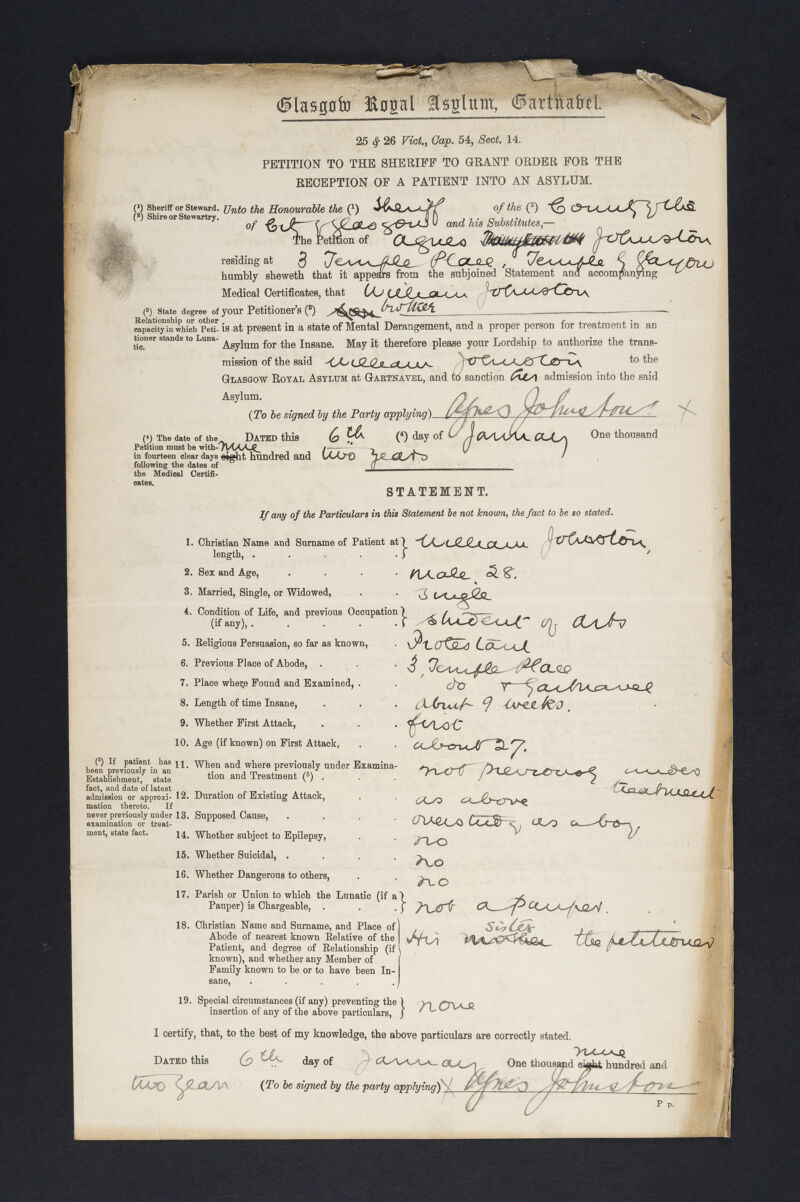 Glasgow Royal Asylum, Gartnavel.
25 & 26 Vict., Cap. 54, Sect. 14.
PETITION TO THE SHERIFF TO GRANT ORDER FOR THE
RECEPTION OF A PATIENT INTO AN ASYLUM.
(1) Sheriff or Steward.
(2) Shire or Stewartry.
Unto the Honourable the (1) Sheriff of the (2) County of the
of City of Glasgow and his Substitutes,—
The Petition of Agnes Johnston
residing at 3 Temple Place, Temple Glasgow
humbly sheweth that it appears from the subjoined Statement and accompanying
Medical Certificates, that William Johnston
(3) State degree of
Relationship or other
capacity in which Peti-
tioner stands to Luna-
tic.
your Petitioner's (3) Son brother
is at present in a state of Mental Derangement, and a proper person for treatment in an
Asylum for the Insane. May it therefore please your Lordship to authorize the trans-
mission of the said William Johnston to the
GLASGOW ROYAL ASYLUM at GARTNAVEL, and to sanction his admission into the said
Asylum.
(To be signed by the Party applying) Agnes Johnston X
(4) The date of the
Petition must be with-
in fourteen clear days
following the dates of
the Medical Certifi-
cates.
DATED this 6th (4) day of January One thousand
nine
eight hundred and two years
STATEMENT.
If any of the Particulars in this Statement be not known, the fact to be so stated.
1. Christian Name and Surname of Patient at
length, . . . . . . William Johnston,
2. Sex and Age, . . . . Male. 28.
3. Married, Single, or Widowed, . . Single
4. Condition of Life, and previous Occupation
(if any), . . . . . . Student of Arts
5. Religious Persuasion, so far as known, . Protestant
6. Previous Place of Abode, . . . 3, Temple Place
7. Place where Found and Examined, . . do & Gartnavel
8. Length of time Insane, . . . About 9 weeks.
9. Whether First Attack, . . . first
10. Age (if known) on First Attack, . . about 27.
(5) If patient has
been previously in an
Establishment, state
fact, and date of latest
admission or approxi-
mation thereto. If
never previously under
examination or treat-
ment, state fact.
11. When and where previously under Examina-
tion and Treatment (5) . . . not previously under
treatment
12. Duration of Existing Attack, . . as above
13. Supposed Cause, . . . . overstudy as a boy
14. Whether subject to Epilepsy, . . no
15. Whether Suicidal, . . . . no
16. Whether Dangerous to others, . . no
17. Parish or Union to which the Lunatic (if a
Pauper) is Chargeable, . . . not a Pauper.
18. Christian Name and Surname, and Place of
Abode of nearest known Relative of the
Patient, and degree of Relationship (if
known), and whether any Member of
Family known to be or to have been In-
sane, . . . . . .
sister
His mother the petitioner
19. Special circumstances (if any) preventing the
insertion of any of the above particulars, none
I certify, that, to the best of my knowledge, the above particulars are correctly stated.
nine
DATED this 6th day of January One thousand eight hundred and
two years (To be signed by the party applying) X Agnes Johnston
P p.